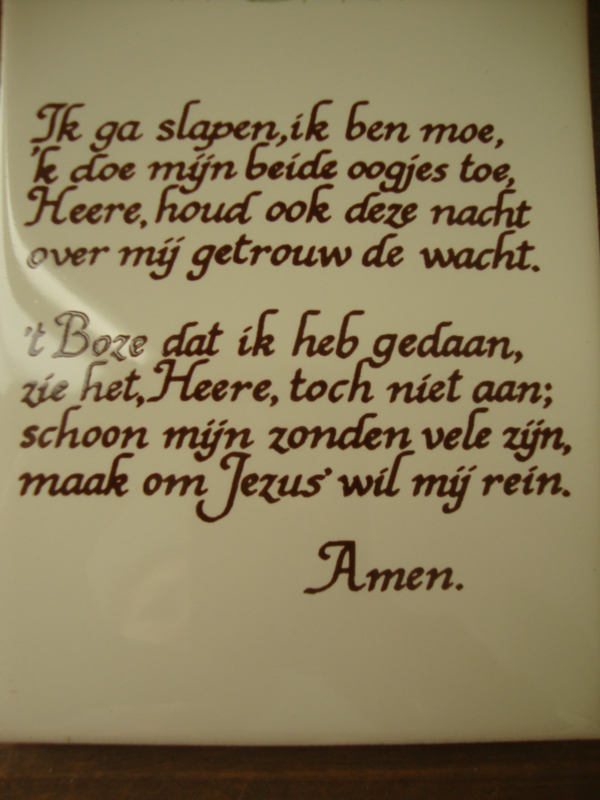 Ik ga slapen, ik ben moe,
'k doe mijn beide oogjes toe,
Heere, houd ook deze nacht
over mij getrouw de wacht.
't Boze dat ik heb gedaan,
zie het, Heere, toch niet aan;
schoon mijn zonden vele zijn,
maak om Jezus' wil mij rein.
Amen.